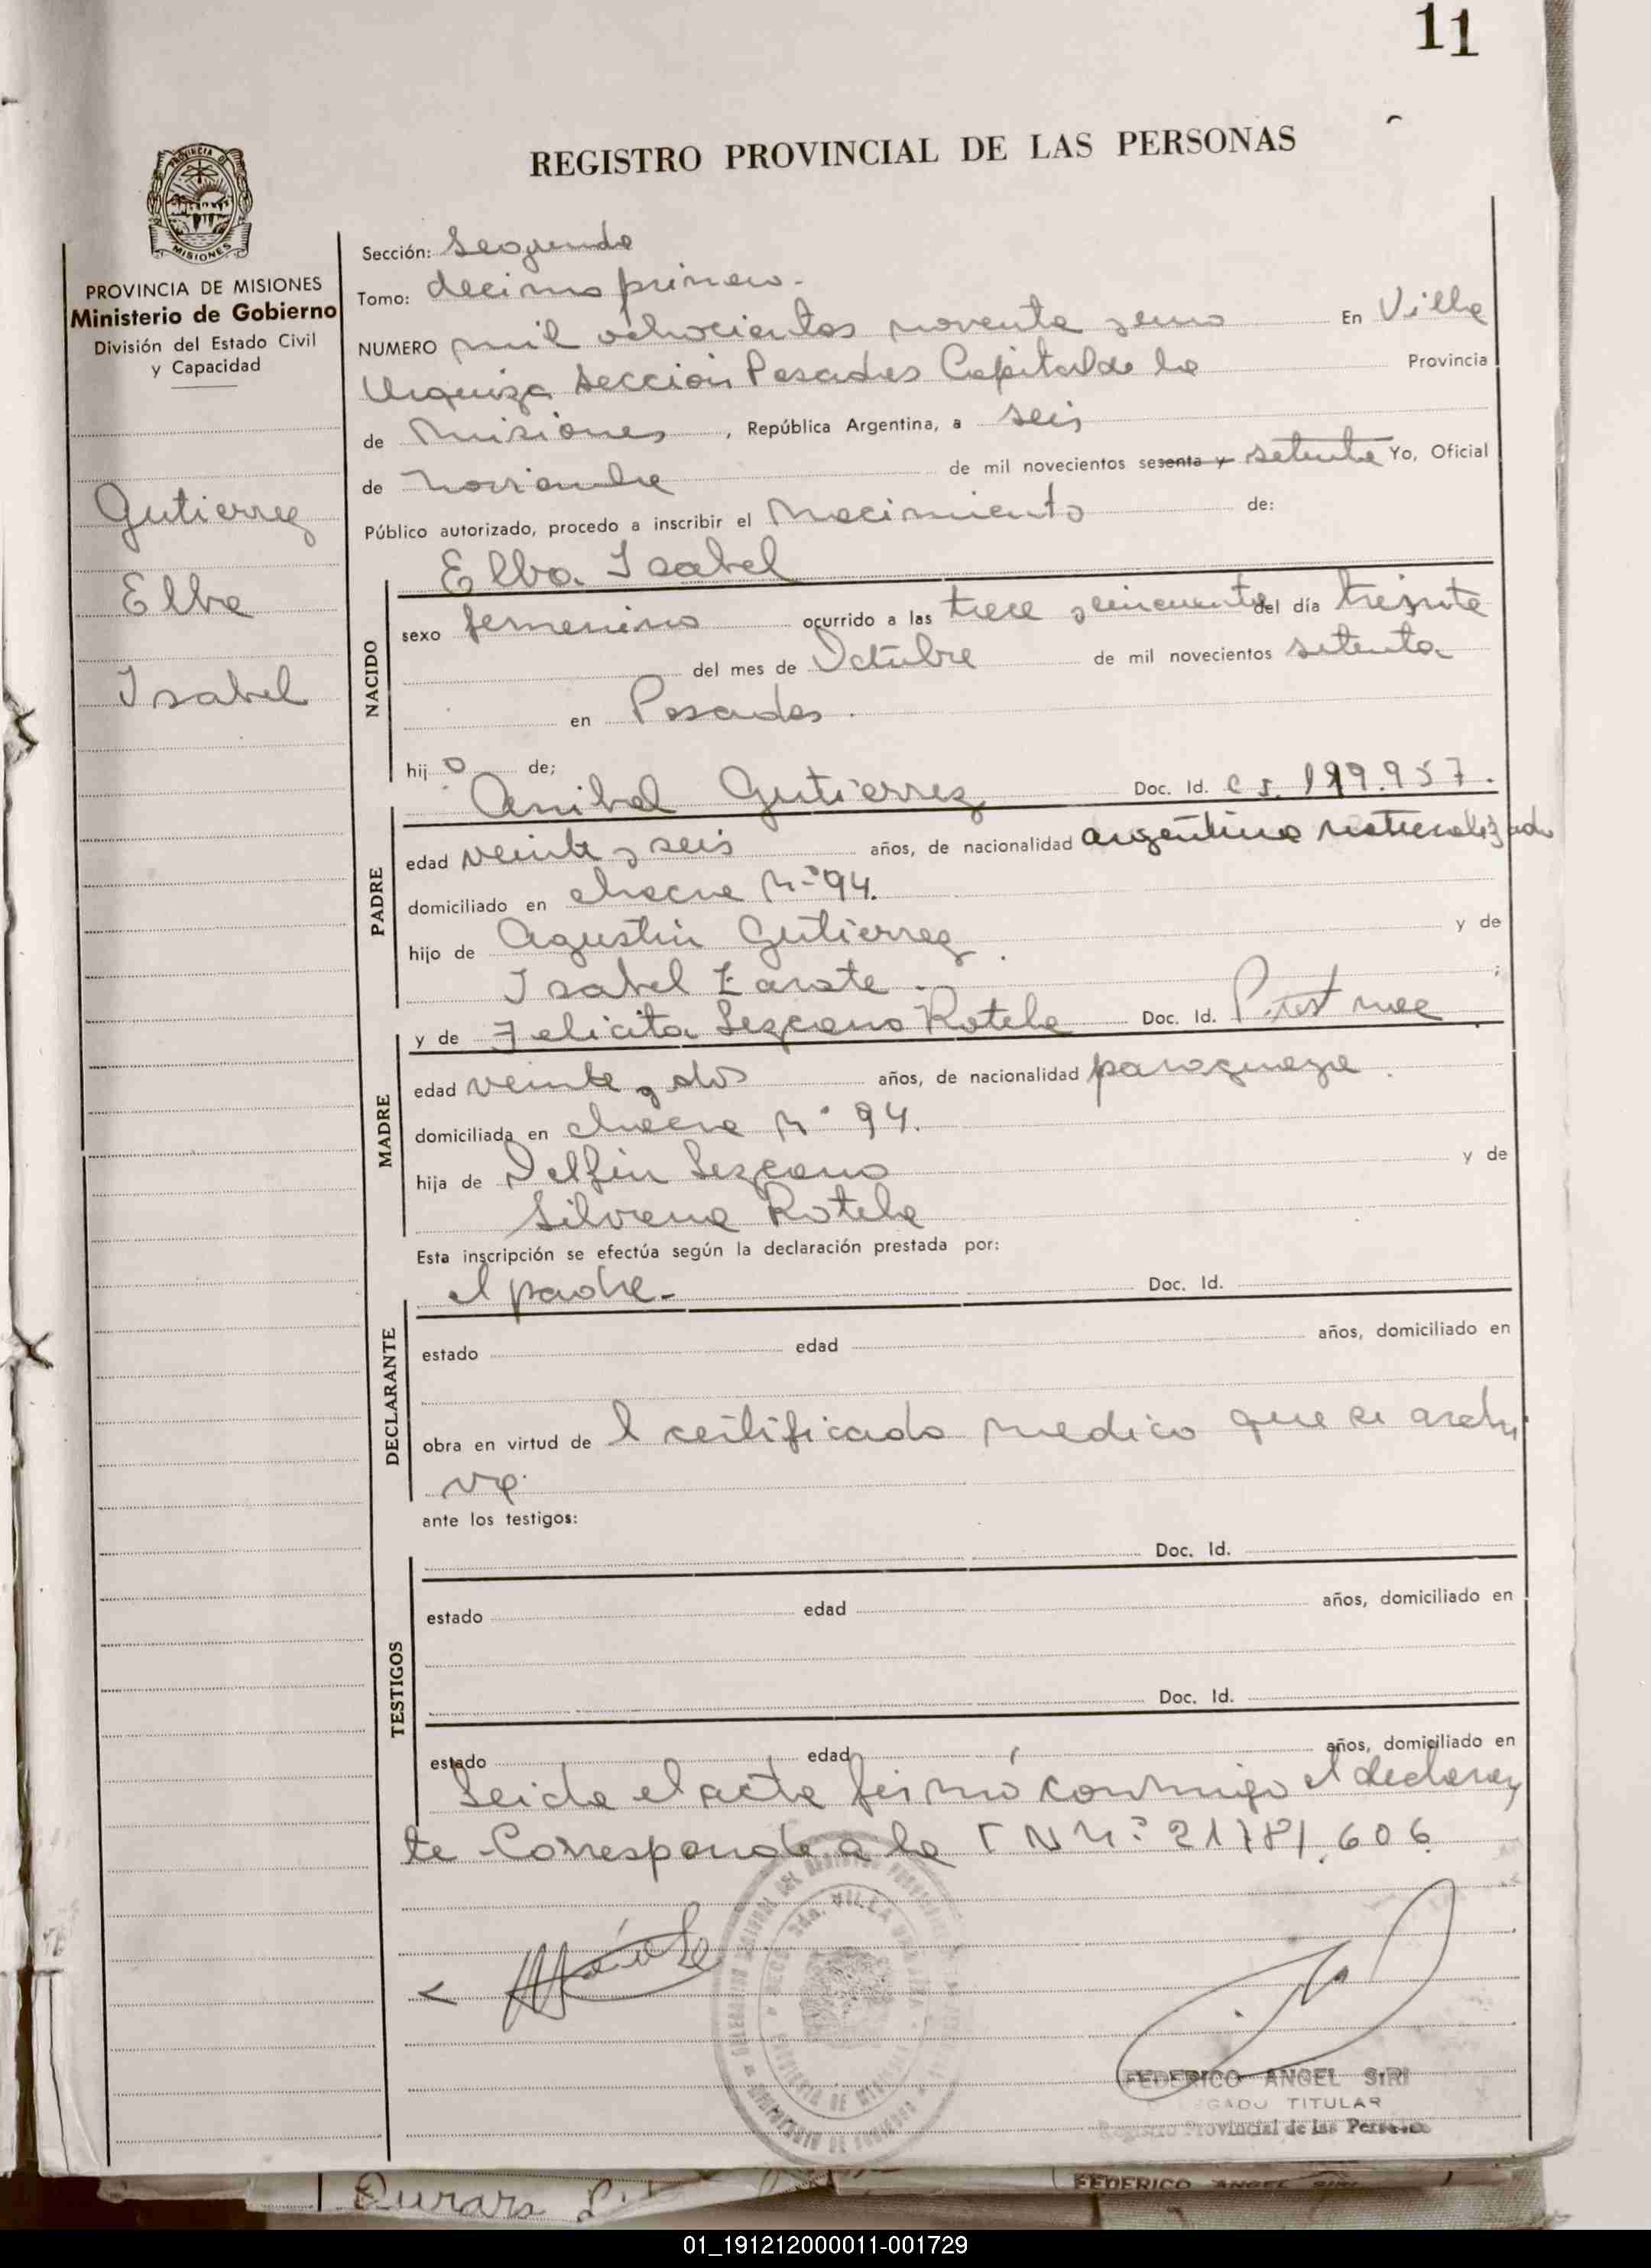 11
REGISTRO PROVINCIAL DE LAS PERSONAS
PROVINCIA DE MISIONES
Ministerio de Gobierno
División del Estado Civil
y Capacidad
Gutierrez
Elba
Isabel
Sección: Segunda
Tomo: decimo primero.
NUMERO mil ochocientos noventa y uno En Villa
Urquiza Sección Posadas Capital de la Provincia
de Misiones, República Argentina, a seis
de noviembre de mil novecientos sesenta y setenta Yo, Oficial
Público autorizado, procedo a inscribir el Nacimiento de:
Elba Isabel
NACIDO
sexo femenino ocurrido a las trece y cincuenta del día treinta
del mes de Octubre de mil novecientos setenta
en Posadas.
hij a de;
PADRE
Anibal Gutierrez Doc. Id. 199.957.
edad veinte y seis años, de nacionalidad argentino naturalizado
domiciliado en chacra Nº 94.
hijo de Agustin Gutierrez. y de
Isabel Zarate. ;
MADRE
y de Felicita Lezcano Rotela Doc. Id.
edad veinte y dos años, de nacionalidad paraguaya.
domiciliada en chacra Nº 94.
hija de Delfin Lezcano y de
Silvana Rotela
Esta inscripción se efectúa según la declaración prestada por:
DECLARANTE
el padre.- Doc. Id.
estado edad años, domiciliado en
obra en virtud de l certificado medico que se archi
va.
ante los testigos:
TESTIGOS
Doc. Id.
estado edad años, domiciliado en
Doc. Id.
estado edad años, domiciliado en
Leida el acta firmó conmigo el declaran
te Corresponde a la Nº 21781.606.
FEDERICO ANGEL SIRI
TITULAR
Registro Provincial de las Personas
FEDERICO ANGEL SIRI
01_191212000011-001729